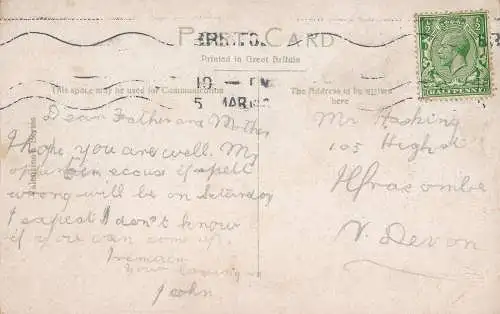 BRISTOL
POST CARD
Printed in Great Britain
10 — PM
5 MAR 19
This space may be used for Communication
The Address to be written
here
HALFPENNY
Dear Father and Mother
I hope you are well. My
excuse if spelt
wrong will be on Saturday
I expect I don't know
if you can come up.
I remain
Your loving
John
Mr Hosking
105 High st
Ilfracombe
N. Devon